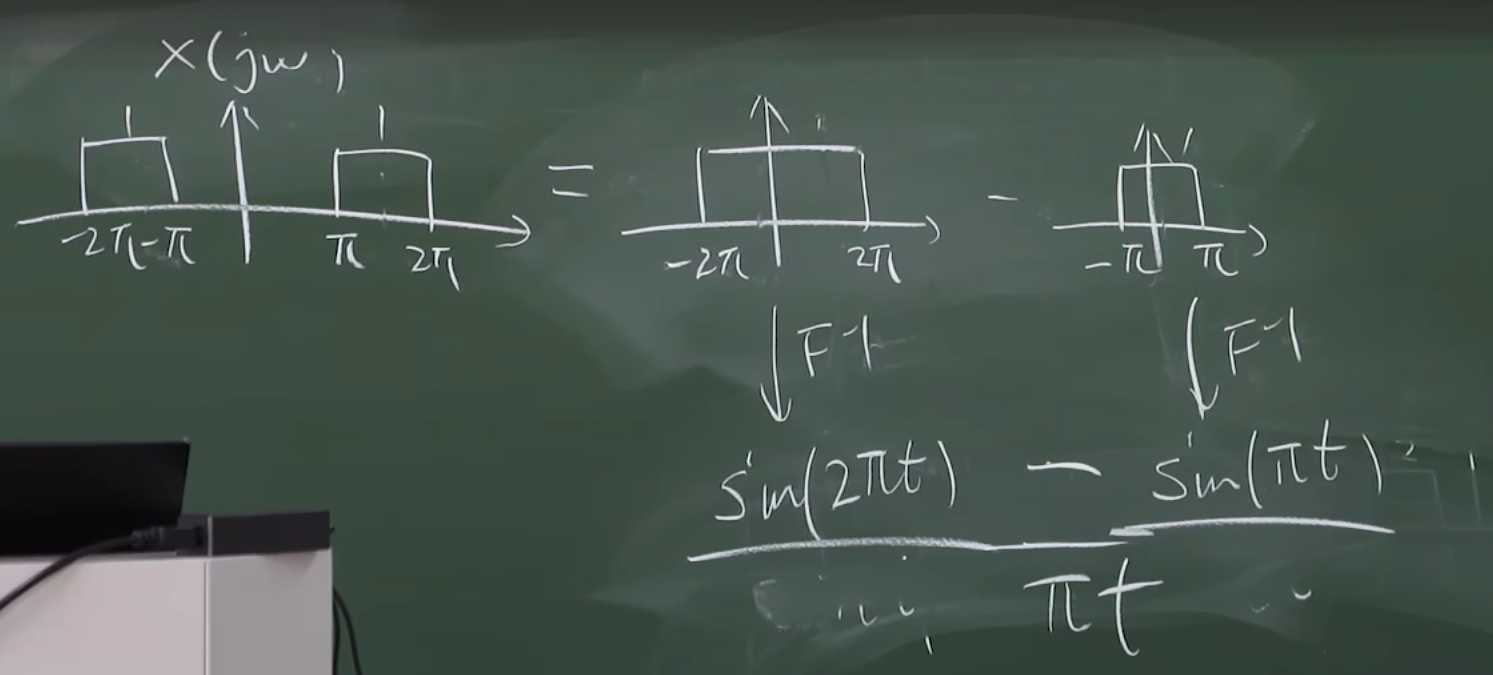 X(jω)
1 1 1 1
-2π -π π 2π = -2π 2π - -π π
F-1 F-1
sin(2πt) - sin(πt)
πt